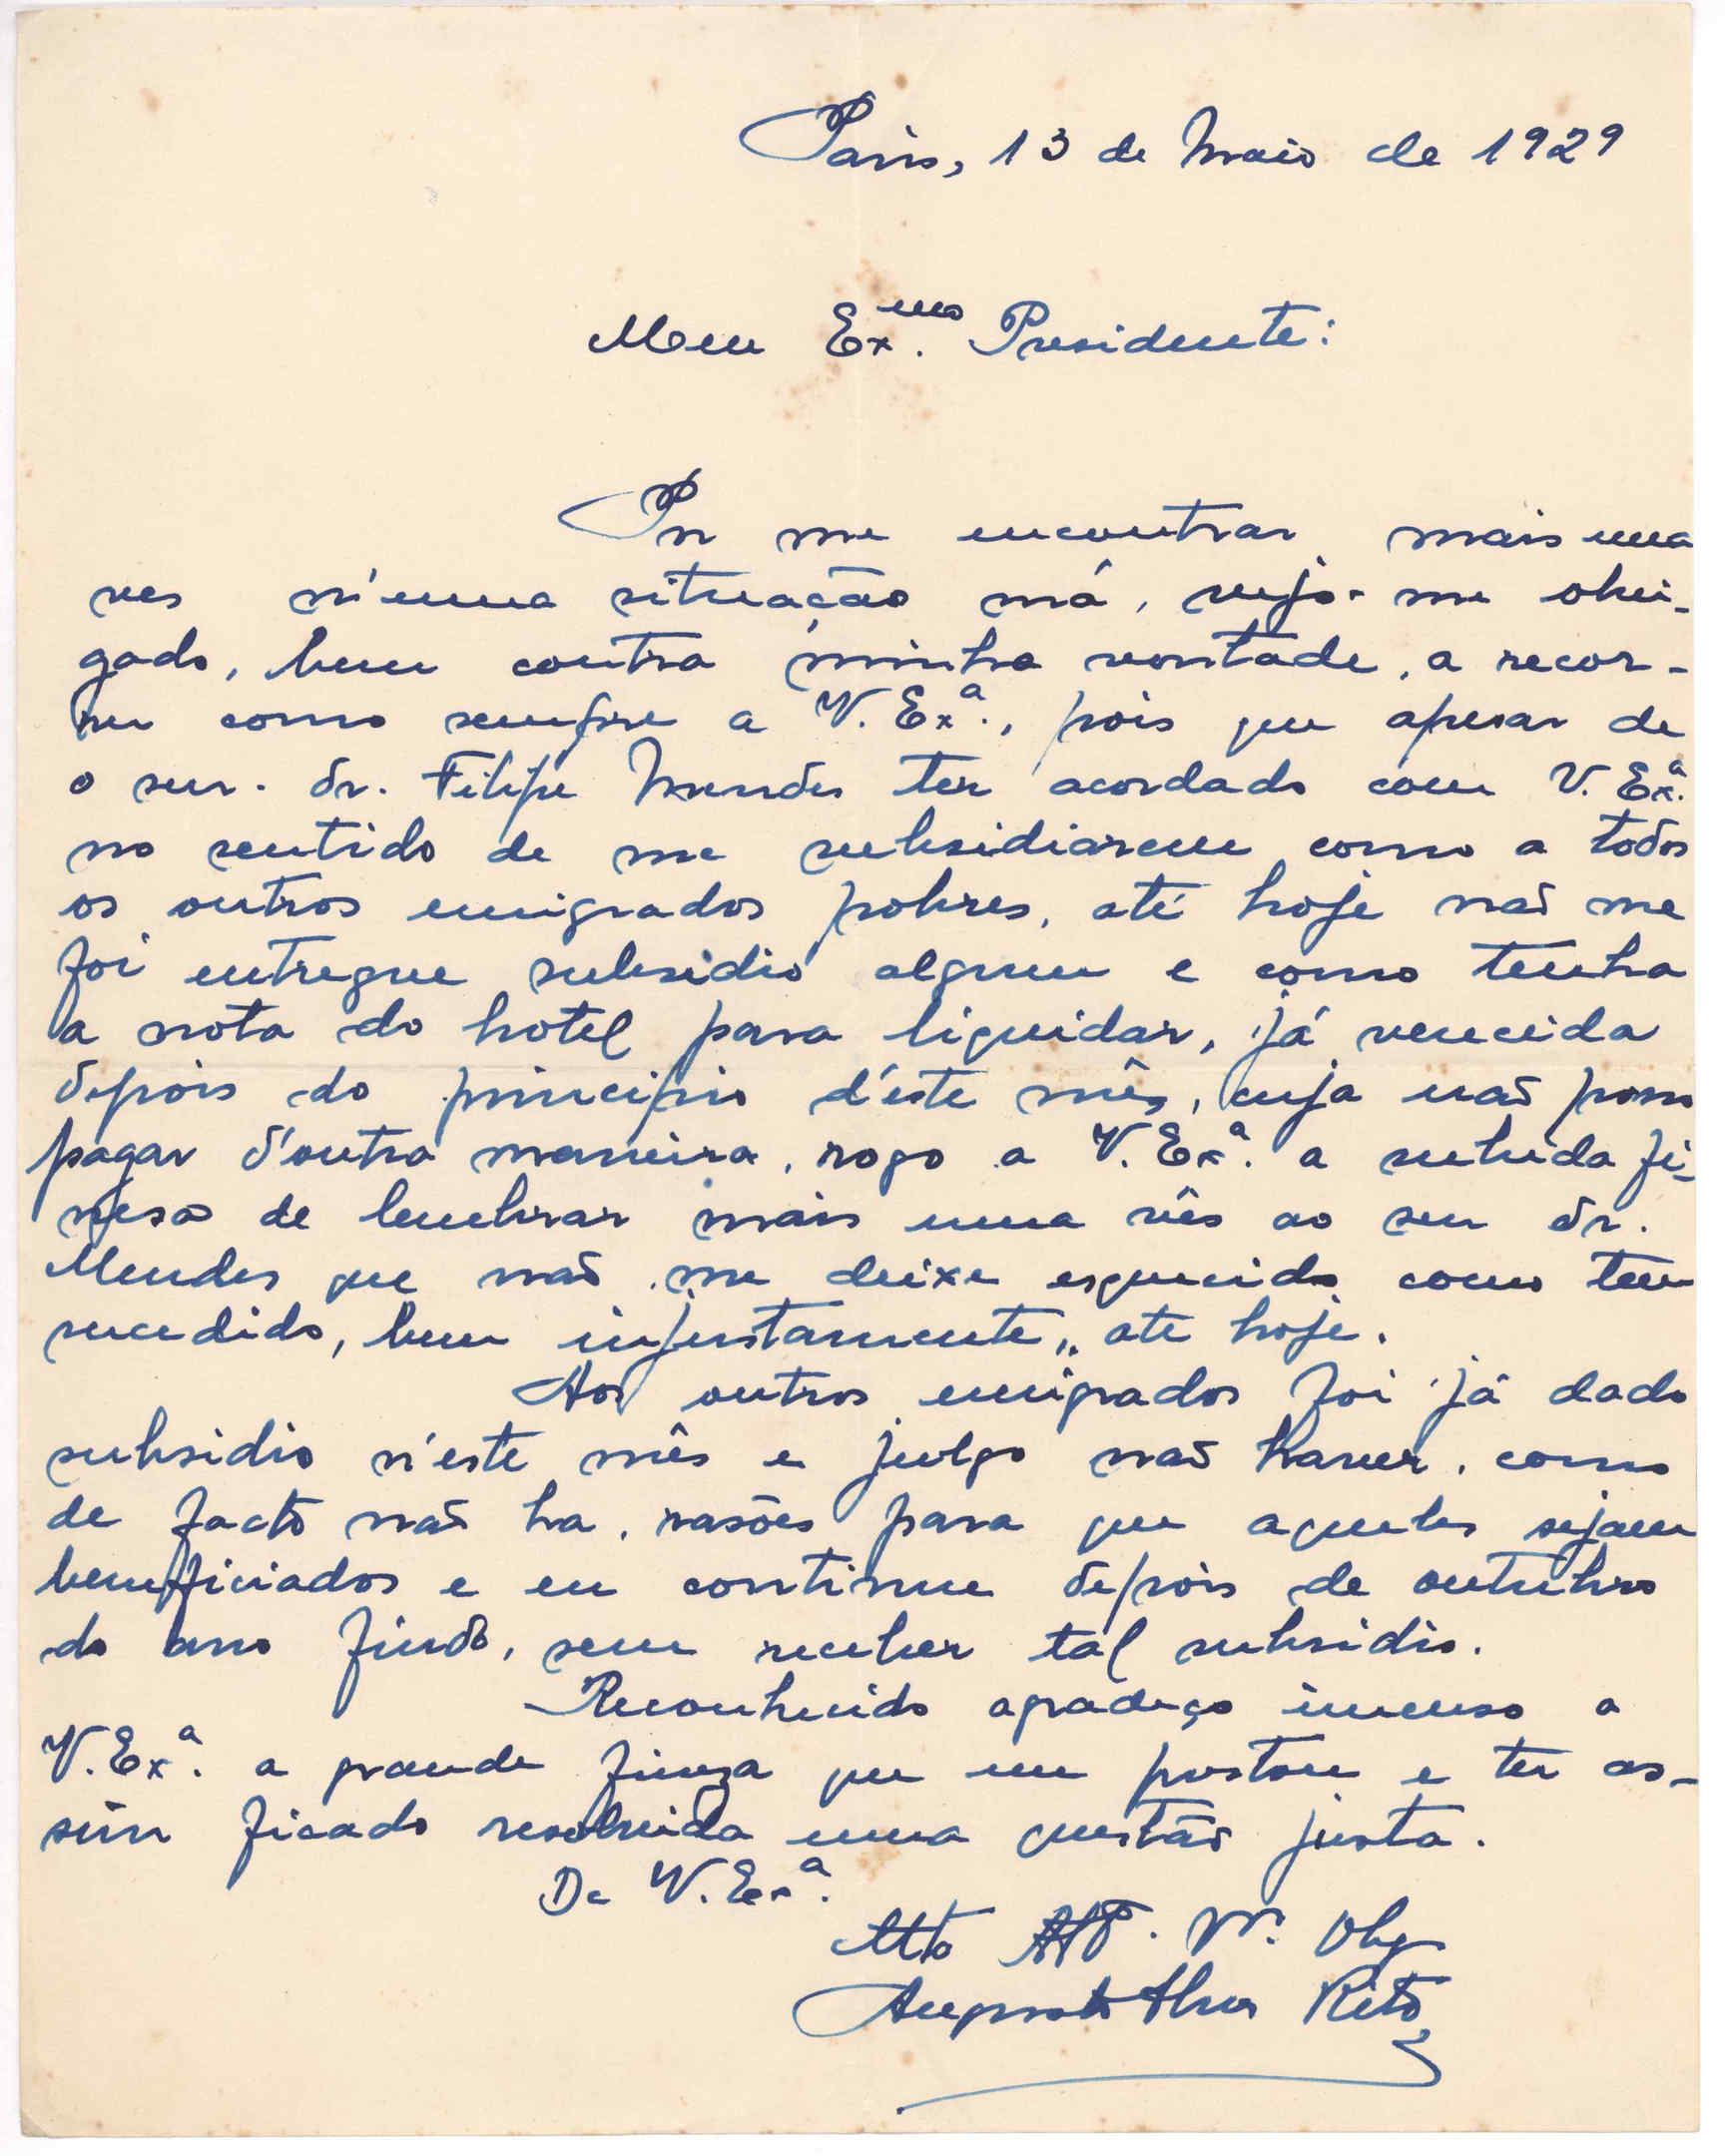 Paris, 13 de Maio de 1929
Meu Ex.mo Presidente:
Por me encontrar mais uma
ves n'uma situação má, vejo-me obri-
gado, bem contra minha vontade, a recor-
rer como sempre a V. Ex.ª, pois que apesar de
o snr. dr. Filipe Mendes ter acordado com V. Ex.ª
no sentido de me subsidiarem como a todos
os outros emigrados pobres, até hoje não me
foi entregue subsidio algum e como tenha
a nota do hotel para liquidar, já vencida
depois do principio d'éste mês, cuja não posso
pagar d'outra maneira, rogo a V. Ex.ª a subida fi-
nesa de lembrar mais uma vês ao snr dr.
Mendes que não me deixe esquecido como tem
sucedido, bem injustamente,, ate hoje.
Aos outros emigrados foi já dado
subsidio n'este mês e julgo não haver, como
de facto não ha, rasões para que aqueles sejam
beneficiados e eu continue depois de outubro
do ano findo, sem receber tal subsidio.
Reconhecido agradeço imenso a
V. Ex.ª a grande fineza que me prestou e ter as-
sim ficado resolvida uma questão justa.
De V. Ex.ª
Atto V. Obg
Augusto Alves Rito